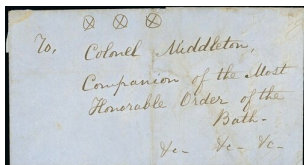 To,
Colonel Middleton,
Companion of the Most
Honorable Order of the
Bath-
&c- &c- &c-